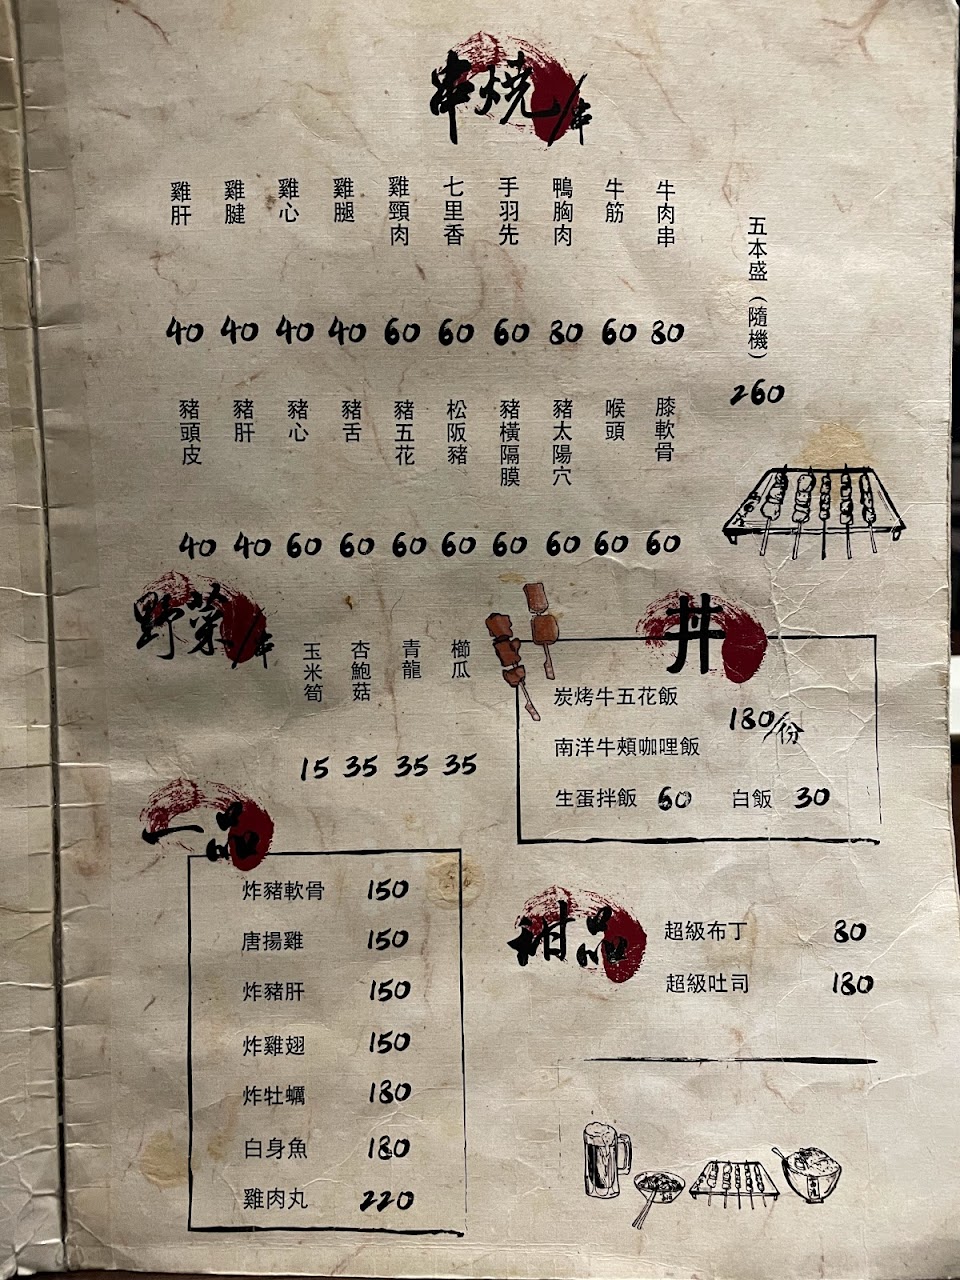 串燒/串
五本盛（隨機）
260
牛肉串 80
牛筋 60
鴨胸肉 80
手羽先 60
七里香 60
雞頸肉 60
雞腿 40
雞心 40
雞腱 40
雞肝 40
膝軟骨 60
喉頭 60
豬太陽穴 60
豬橫隔膜 60
松阪豬 60
豬五花 60
豬舌 60
豬心 60
豬肝 40
豬頭皮 40
野菜/串
櫛瓜 35
青龍 35
杏鮑菇 35
玉米筍 15
丼
炭烤牛五花飯
180/份
南洋牛頰咖哩飯
生蛋拌飯 60 白飯 30
一品
炸豬軟骨 150
唐揚雞 150
炸豬肝 150
炸雞翅 150
炸牡蠣 180
白身魚 180
雞肉丸 220
甜品
超級布丁 80
超級吐司 180